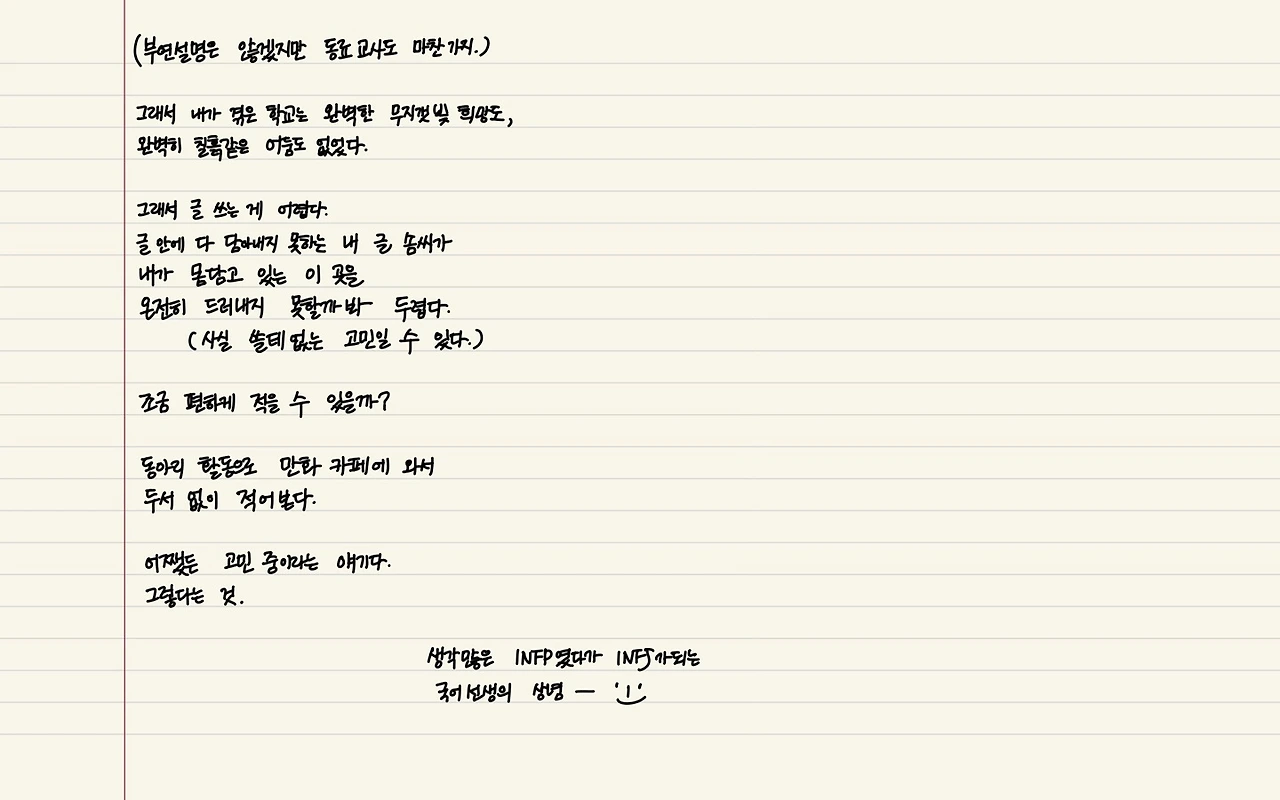 (부연설명은 않겠지만 동료교사도 마찬가지.)
그래서 내가 겪은 학교는 완벽한 무지갯빛 희망도,
완벽히 칠흙같은 어둠도 없었다.
그래서 글 쓰는 게 어렵다.
글 안에 다 담아내지 못하는 내 글 솜씨가
내가 몸담고 있는 이 곳을
온전히 드러내지 못할까봐 두렵다.
(사실 쓸데없는 고민일 수 있다.)
조금 편하게 적을 수 있을까?
동아리 활동으로 만화 카페에 와서
두서 없이 적어본다.
어쨌든 고민 중이라는 얘기다.
그렇다는 것.
생각많은 INFP였다가 INFJ가되는
국어선생의 상념 —